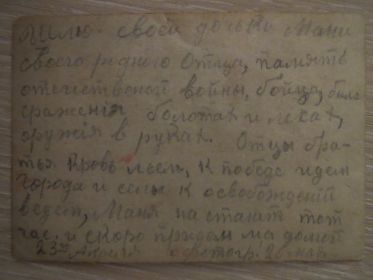 Милю своей дочьки Мани
своего родного Отца, память
отечественой войны, бойца, были
сражения болотах и лесах,
оружия в руках. Отцы бра-
тья Кровь льем, К победе идем
города и селы к освобождений
ведем, Маня настанит тот
час. и скоро придем мы домой
23го Апреля фотогр. 26 мая